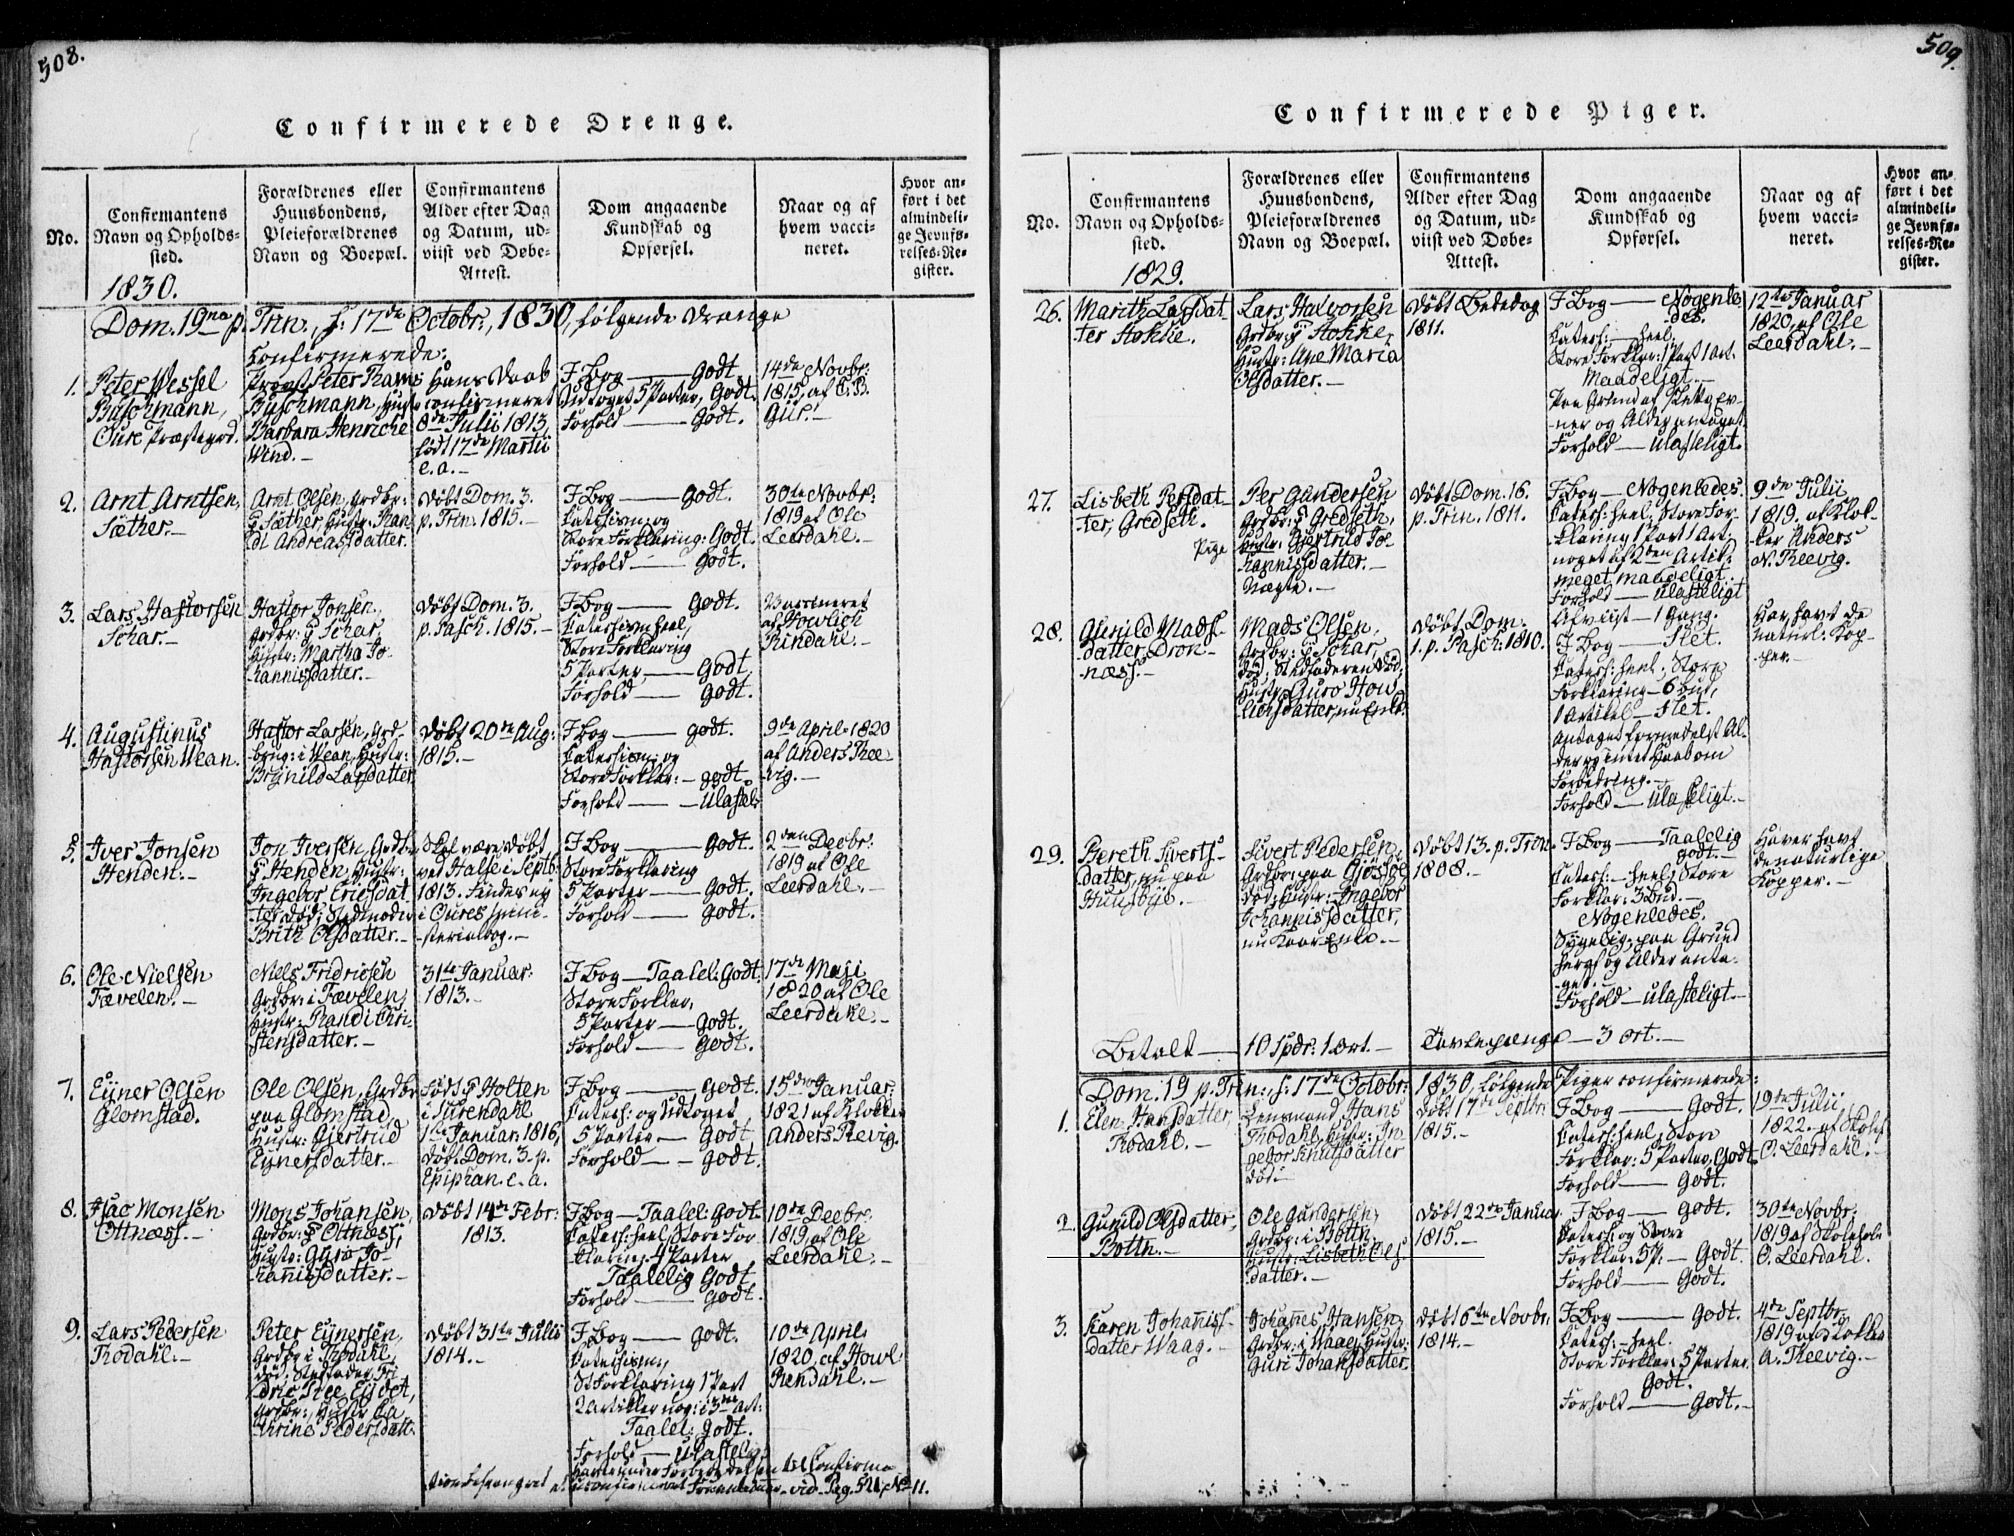 508.
Confirmerede Drenge.
No.
Confirmantens
Navn og Opholds-
sted.
1830.
Forældrenes eller
Huusbondens,
Pleieforældrenes
Navn og Boepæl.
Confirmantens
Alder efter Dag
og Datum, ud-
viist ved Døbe-
Attest.
Dom angaaende
Kundskab og
Opførsel.
Naar og af
hvem vacci-
neret.
Hvor an-
ført i det
almindeli-
ge Jevnfø-
relses-Re-
gister.
Dom. 19na p. Trin., s: 17de Octobr: 1830, følgende Drenge
Confirmerede:
1.
Peter Wessel
Buschmann,
Oure Præstegrd.
Provst Peter Trams
Buschmann, Hustr:
Barbara Henriche
Wind.-
Hans Daab
confirmeret
8de Julii 1813,
født 17de Martii
e.a.-
I Bog - Godt.
Udtoget 5 Parter, Godt.
Forhold - Godt.
14de Novbr:
1815, af C. B.
2.
Arnt Arntsen,
Sæther.-
Arnt Olsen, Grdbr:
p Sæther, Hustr: Ran
di Andreasdatter.
Døbt Dom. 3.
p. Trin. 1815.-
I Bog - Godt.
Catechism: og
Store Forklaring: Godt.
Forhold - Godt.
30te Novbr:
1819 af Ole
Leerdahl.-
3.
Lars Hastorsen
Schar.-
Hastor Jonsen,
Grdbr: p Schar,
Hustr: Martha Jo-
hannisdatter.-
Døbt Dom. 3.
p. Pasch. 1815.-
I Bog - Godt.
Catechism heel,
Store Forklaring
5 Parter, - Godt.
Forhold - Godt.
Vaccineret
af Howlich
Rindahl.-
4.
Augustinus
Hastorsen Wean.
Hastor Larsen, Grd-
brug: i Wean, Hustr:
Brynild Larsdatter
Døbt 20de Aug:
1815.-
I Bog - godt.
Catechism: og
Store Forklar: - godt.
Forhold - Ulastel:
9de April 1820
af Anders Ree-
vig.-
5.
Iver Jonsen
Henden.-
Jon Iversen, Grdbr:
p Henden, Hustr:
Ingebor Ericsdat-
ter død; Stedmoder
Brith Olsdatter.-
Skal være døbt
ved Halse i Septb:
1813. Findes ey
i Oures Mini-
sterialbog.-
I Bog - Godt.
Store Forklaring
5 Parter - Godt.
Forhold - Godt.
2den Decbr:
1819 af Ole
Leerdahl.-
6.
Ole Nielsen
Tævelen.-
Niels Fridricsen
Grdbr: i Tævelen,
Hustr: Randi Chri-
stensdatter.-
31te Januar:
1813.-
I Bog - Taalel: Godt.
Store Forklar,
5 Parter - Godt.
Forhold - Godt.
17de Maji
1820 af Ole
Leerdahl.-
7.
Eyner Olsen
Glomstad.
Ole Olsen, Grdbr
paa Glomstad,
Hustr: Gjertrud
Eynersdatter.-
Født p Holten
i Surendahl
1ste Januar 1816,
døbt Dom. 3. p.
Epiphan. e.a.
I Bog - Godt.
Catech: og Udtoget
5 Parter - Godt.
Forhold - Godt.
15de Januar:
1821 af Klokker
Anders Revig.
8.
Isac Monsen
Ottnæss.-
Mons Johansen,
Grdbr: p Ottnæss,
Hustr: Gyro Jo-
hannisdatter.-
Døbt 14de Febr:
1813.
I Bog - Taalel: Godt.
Catech: heel, Store For-
klaring 4 Parter
Taalelig Godt.
Forhold - Godt.
10de Decbr:
1819 af Ole
Leerdahl.-
9.
Lars Pedersen
Trodahl.-
Peter Eynersen,
Grdbr: i Trodahl,
død, Stedfader Fri-
dric Ree Eydet,
Grdbr:, Hustr Ca-
thrine Pedersdatt:
Døbt 31te Julii
1814.-
I Bog - godt.
Catechism:,
St: Forklaring 1 Part
2 Artikler nog: i 3die Art:
Taalel: Godt.
Forhold - Ulastelig
10de April
1820, af Howl
Rendahl.-
vid. Pag. 521, No 11.
509.
Confirmerede Piger.
No.
Confirmantens
Navn og Opholds-
sted.
1829.
Forældrenes eller
Huusbondens,
Pleieforældrenes
Navn og Boepæl.
Confirmantens
Alder efter Dag
og Datum, ud-
viist ved Døbe-
Attest.
Dom angaaende
Kundskab og
Opførsel.
Naar og af
hvem vacci-
neret.
Hvor an-
ført i det
almindeli-
ge Jevnfø-
relses-Re-
gister.
26.
Marith Larsdat-
ter Hokke.
Lars Halvorsen
Grdbr: p Hokke,
Hustr: Ane Maria
Olsdatter.-
Døbt Bededag
1811.
I Bog - Nogenle-
des.
Catech: - heel.
Store Forklar: 1 Part 1 Art.
Maadeligt.-
Paa Grund af
og Alder antaget.
Forhold - Ulasteligt.
12te Januar
1820, af Ole
Leerdahl.-
27.
Lisbeth Persdat-
ter, Gredseth.
Pige
Per Gundersen
Grdbr: p Gredseth,
Hustr: Gjertrud Jo-
hannisdatter.-
Døbt Dom. 16.
p. Trin. 1811.
I Bog - Nogenledes.
Catech: heel, Store For-
klaring 1 Part 1 Art.
noget af 2den Artik:
meget maadeligt.
Forhold - Ulasteligt
9de Julii
1819. af Klok-
ker Anders
N. Reevig.
28.
Gunild Mads-
datter, Dron-
næss.-
Mads Olsen,
Grdbr: p Schar,
død, Stedfaderen død,
Hustr: Guro How-
lichsdatter, nu Enke.
Døbt Dom.
1. p. Pasch: 1810.
Afviist - 1 Gang.
I Bog - Slet.
Catech: heel, Store
Forklaring - 6 Bud,
1 Artikel - Slet.
Antaget formedelst Al-
der og intet Haab om
Forbedring.-
Forhold - Ulasteligt.-
Har havt de
naturl: Kop-
per.-
29.
Bereth Siverts-
datter, nu paa
Huusbye.-
Sivert Pedersen,
Grdbr: paa
død, Hustr: Ingebor
Johannisdatter,
nu Enke.-
Døbt 13. p. Trin.
1808.-
I Bog - Taalelig
godt.-
Catech: - heel, Store
Forklar: 3 Bud.-
Nogenledes.
Sygelig, paa Grund
heraf og Alder anta-
get.
Forhold - Ulasteligt.-
Haver havt
de naturlige
Kopper.-
Betalt - 10 Spdr: 1 ort.- Tavlepenge - 3 ort.-
Dom. 19 p. Trin:, s: 17de Octobr: 1830, følgende Piger confirmerede:
1.
Elen Hansdatter,
Trodahl.-
Lensmand Hans
Trodahl, Hustr: In-
gebor Knutsdatter
død.-
Døbt 17de Septbr:
1815.-
I Bog - Godt.
Catech: heel, Store
Forklar: 5 Parter, Godt.
Forhold - Godt.
19de Julii
1822. af Skoleh:
O. Leerdahl.-
2.
Gunild Olsdatter,
Botten.-
Ole Gundersen,
Grdbr: i Botten,
Hustr: Lisbeth Ols-
datter.-
Døbt 22de Januar
1815.-
I Bog - godt.
Catech: og Store
Forklar: 5 P. - Godt.
Forhold - Godt.
30te Novbr:
1819 af Skoleholr
O. Leerdahl.
3.
Karen Johannis-
datter Waag.-
Johannes Hansen,
Grdbr: i Waag, Hustr:
Guri Johansdatter.
Døbt 6te Novbr:
1814.-
I Bog - Godt.
Catech: - heel.
Store Forklar: 5 Parter.
Godt.
Forhold - Godt.-
4de Septbr:
1819 af Klokker
A. Reevig.-